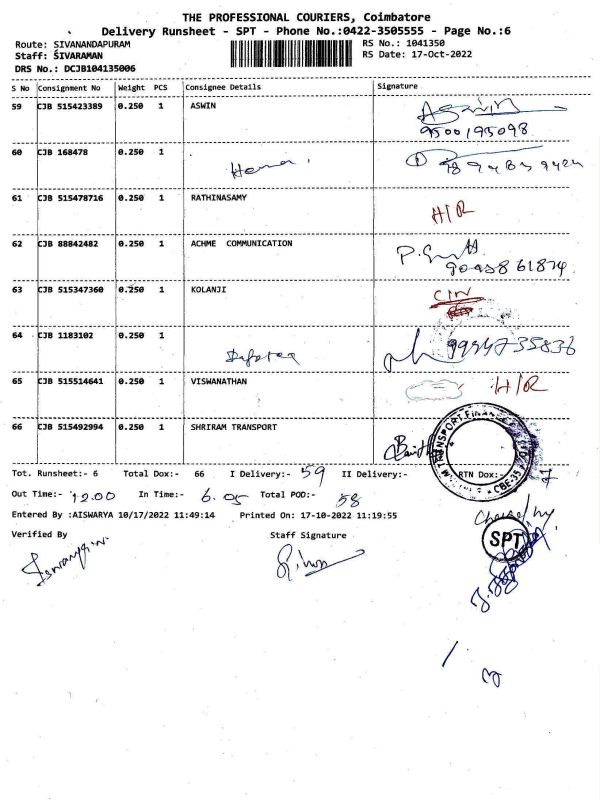 THE PROFESSIONAL COURIERS, Coimbatore
Delivery Runsheet - SPT - Phone No.:0422-3505555 - Page No.:6
Route: SIVANANDAPURAM RS No.: 1041350
Staff: SIVARAMAN RS Date: 17-Oct-2022
DRS No.: DCJB104135006
S No Consignment No Weight PCS Consignee Details Signature
59 CJB 515423389 0.250 1 ASWIN Aswin
9500195098
60 CJB 168478 0.250 1 Hema
61 CJB 515478716 0.250 1 RATHINASAMY H/R
62 CJB 88842482 0.250 1 ACHME COMMUNICATION
63 CJB 515347360 0.250 1 KOLANJI
64 CJB 1183102 0.250 1
65 CJB 515514641 0.250 1 VISWANATHAN H/R
66 CJB 515492994 0.250 1 SHRIRAM TRANSPORT
TRANSPORT FINANCE
Tot. Runsheet:- 6 Total Dox:- 66 I Delivery:- 59 II Delivery:- RTN Dox:- 7
Out Time:- 12.00 In Time:- 6.05 Total POD:- 58
Entered By :AISWARYA 10/17/2022 11:49:14 Printed On: 17-10-2022 11:19:55
Verified By Staff Signature
SPT